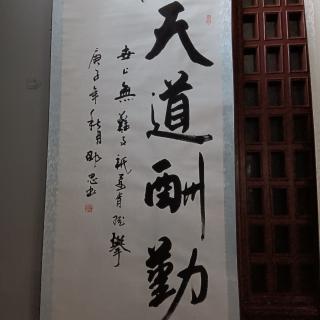 天道酬勤
世上無難事祇要肯登攀
庚子年秋月